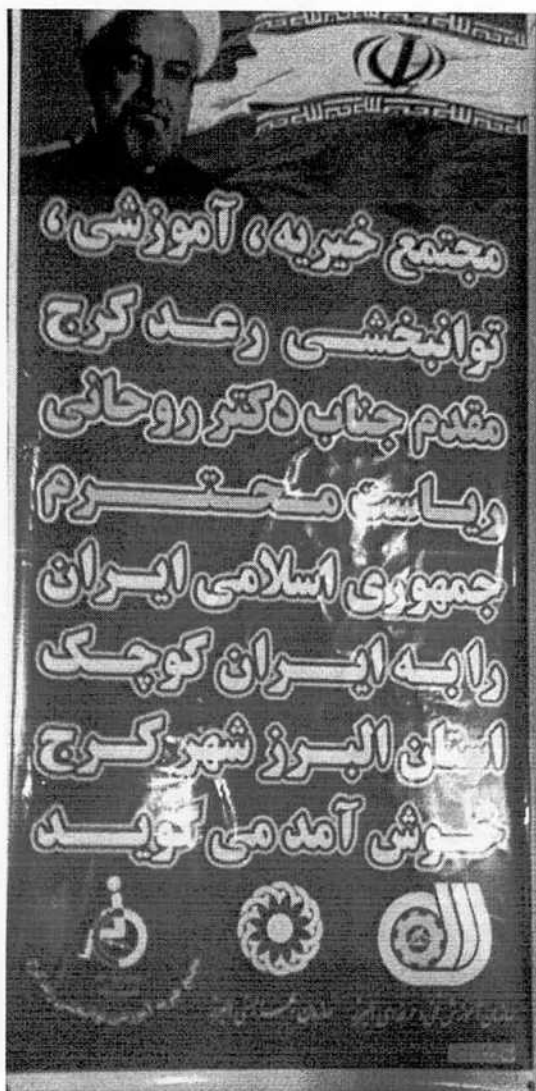 مجتمع خیریه ، آموزشی ،
توانبخشی رعد کرج
مقدم جناب دکتر روحانی
ریاست محترم
جمهوری اسلامی ایران
را به ایران کوچک
استان البرز شهر کرج
خوش آمد می گوید